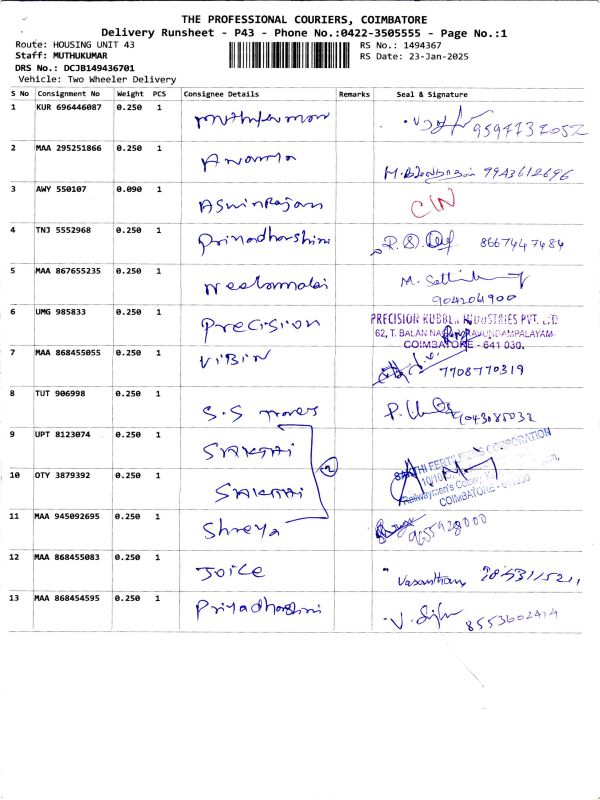 THE PROFESSIONAL COURIERS, COIMBATORE
Delivery Runsheet - P43 - Phone No.:0422-3505555 - Page No.:1
Route: HOUSING UNIT 43 RS No.: 1494367
Staff: MUTHUKUMAR RS Date: 23-Jan-2025
DRS No.: DCJB149436701
Vehicle: Two Wheeler Delivery
S No Consignment No Weight PCS Consignee Details Remarks Seal & Signature
1 KUR 696446087 0.250 1
2 MAA 295251866 0.250 1 Ananya 9943612696
3 AWY 550107 0.090 1 Aswin Rajan C/N
4 TNJ 5552968 0.250 1 Priyadharshini 8667447484
5 MAA 867655235 0.250 1 Neelamalai 904204900
6 UMG 985833 0.250 1 Precision PRECISION RUBBER INDUSTRIES PVT. LTD
62, T. BALAN
COIMBATORE - 641 030.
7 MAA 868455055 0.250 1 Vibin 7708770319
8 TUT 906998 0.250 1 S.S
9 UPT 8123074 0.250 1 Sakthi SAKTHI FERTILIZERS CORPORATION
10 OTY 3879392 0.250 1 Sakthi 2 Railwaymen's Colony
COIMBATORE
11 MAA 945092695 0.250 1 Shreya 9655928000
12 MAA 868455083 0.250 1 Joice Vasantham
13 MAA 868454595 0.250 1 Priyadharshini 8553602414